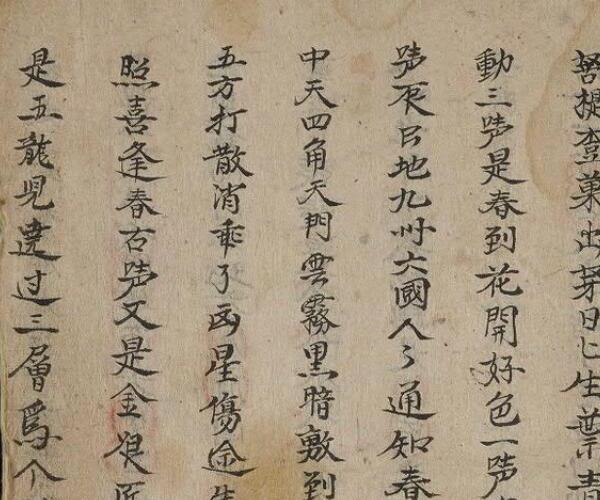 菩提查菓出芽日匕生葉青
動三声是春到花開好色一声
声辰巳地九州六國人々通知春
中天四角天門雲霧黑暗敷到
五方打散消乖了凶星傷途生
照喜逢春右声又是金娘匠
是五龍兒遶过三層為个